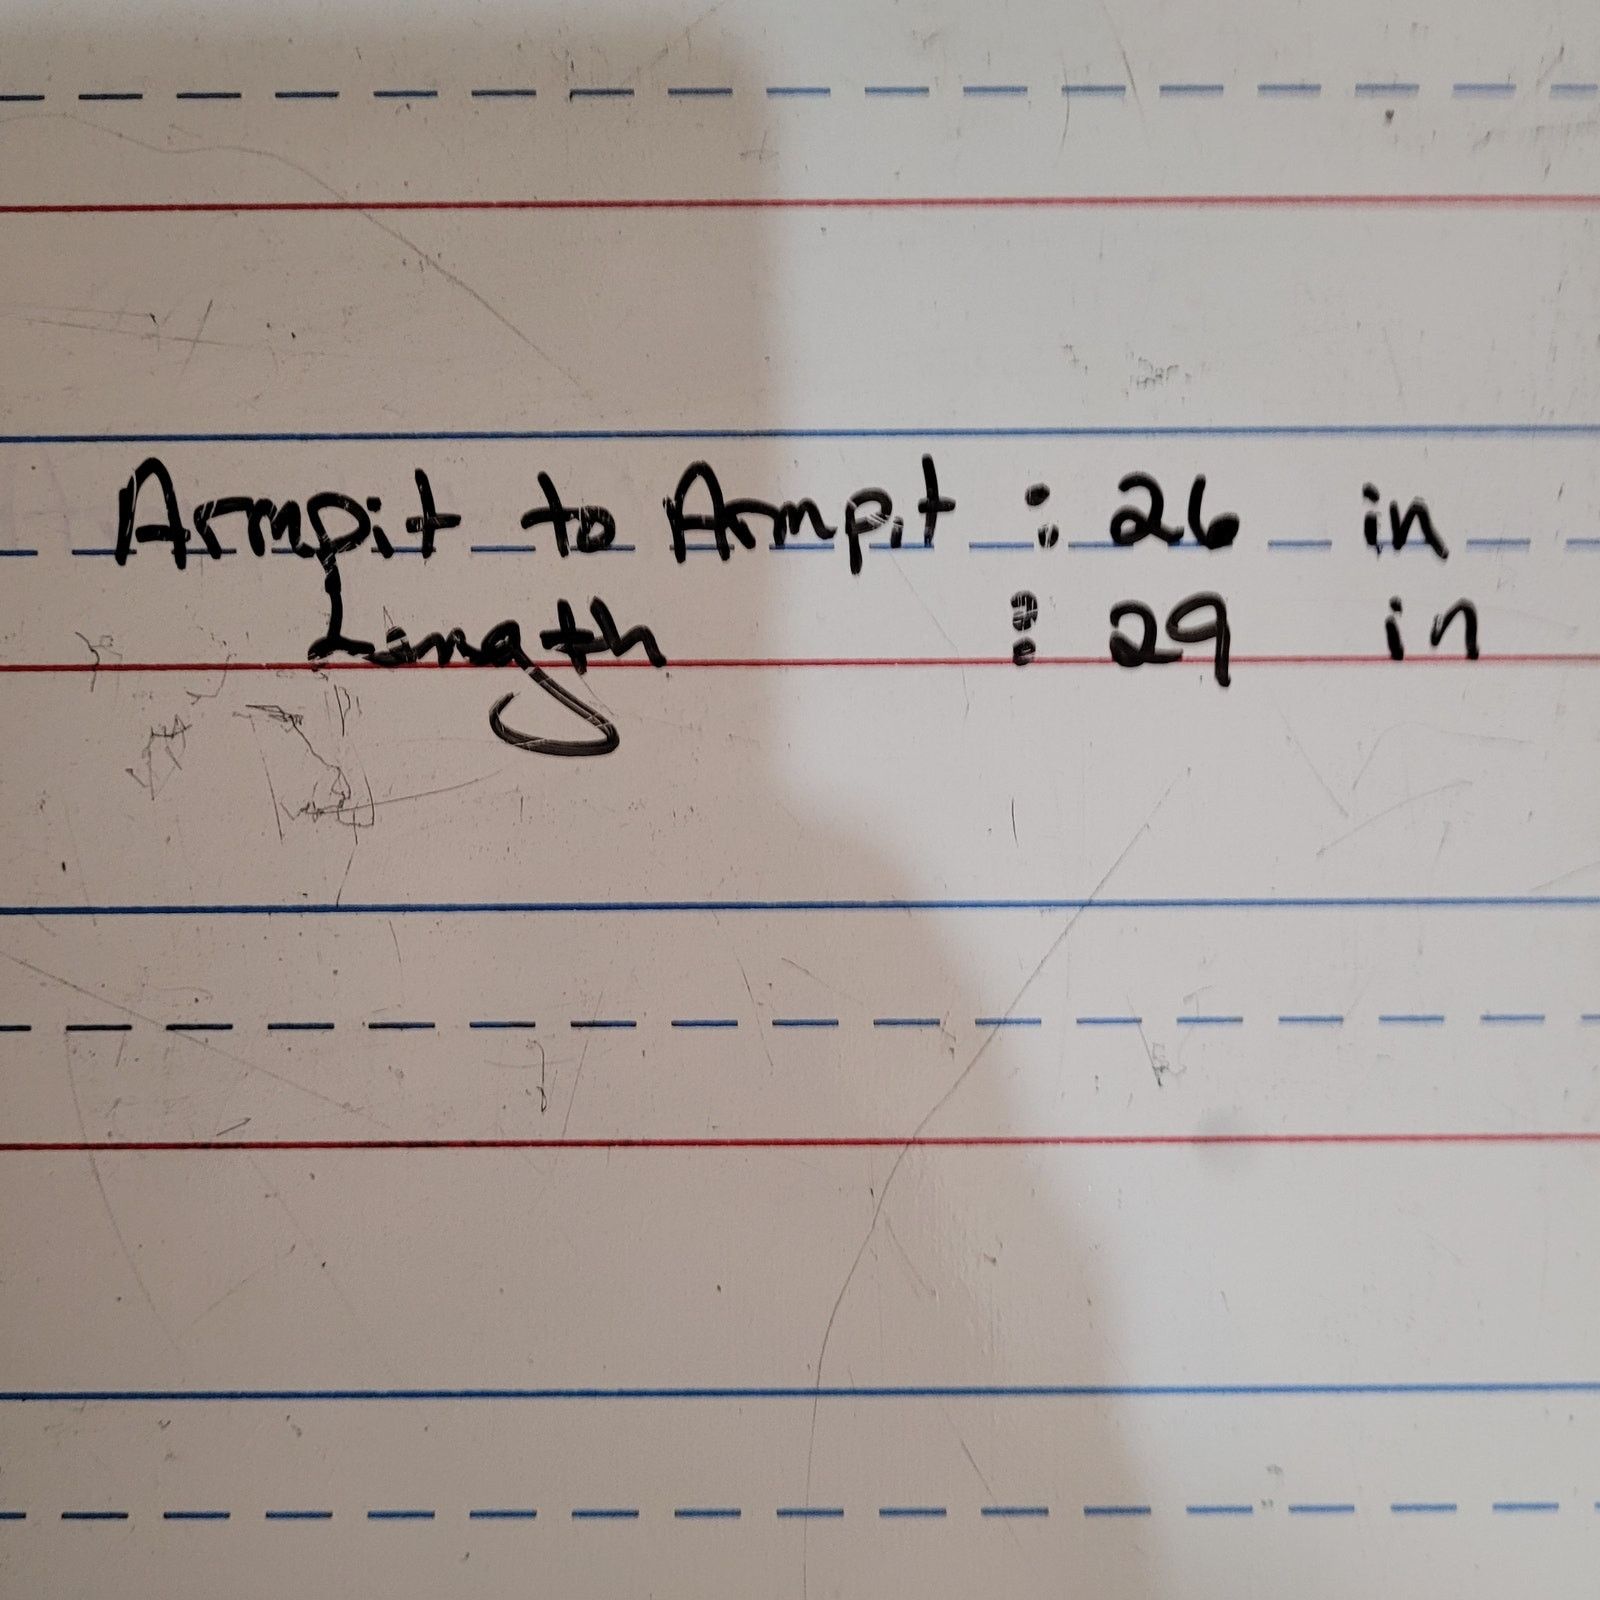 Armpit to Armpit : 26 in
Length : 29 in